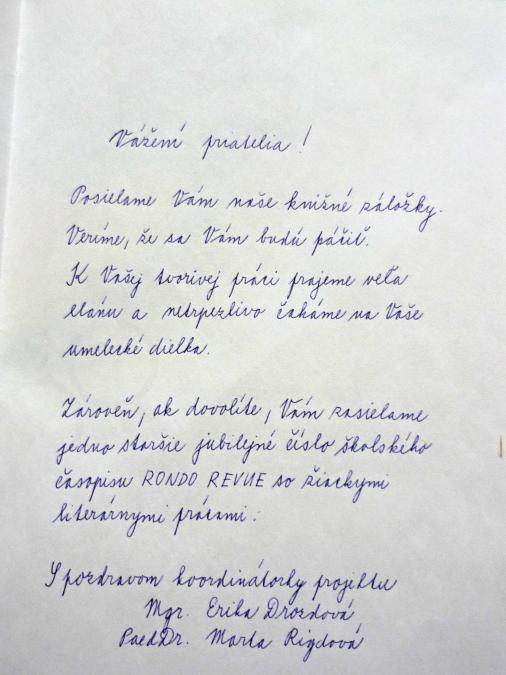 Vážení priatelia!
Posielame Vám naše knižné záložky.
Veríme, že sa Vám budú páčiť.
K Vašej tvorivej práci prajeme veľa
elánu a netrpezlivo čakáme na Vaše
umelecké dielka.
Zároveň, ak dovolíte, Vám zasielame
jedno staršie jubilejné číslo školského
časopisu RONDO REVUE so žiackymi
literárnymi prácami.
S pozdravom koordinátorky projektu
Mgr. Erika Drozdová
PaedDr. Marta Rigdová